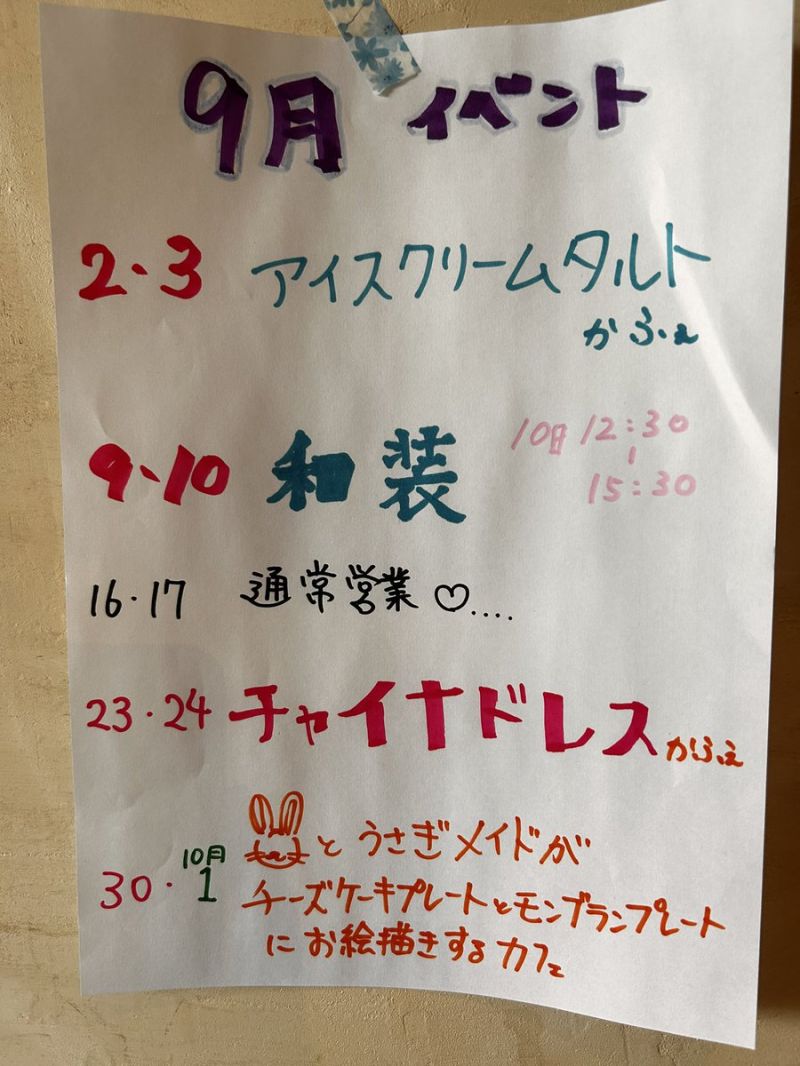 9月 イベント
2・3 アイスクリームタルト
かふぇ
9・10 和装 10日 12:30
15:30
16・17 通常営業♡....
23・24 チャイナドレスかふぇ
とうさぎメイドが
30・10月1 チーズケーキプレートとモンブランプレート
にお絵描きするカフェ